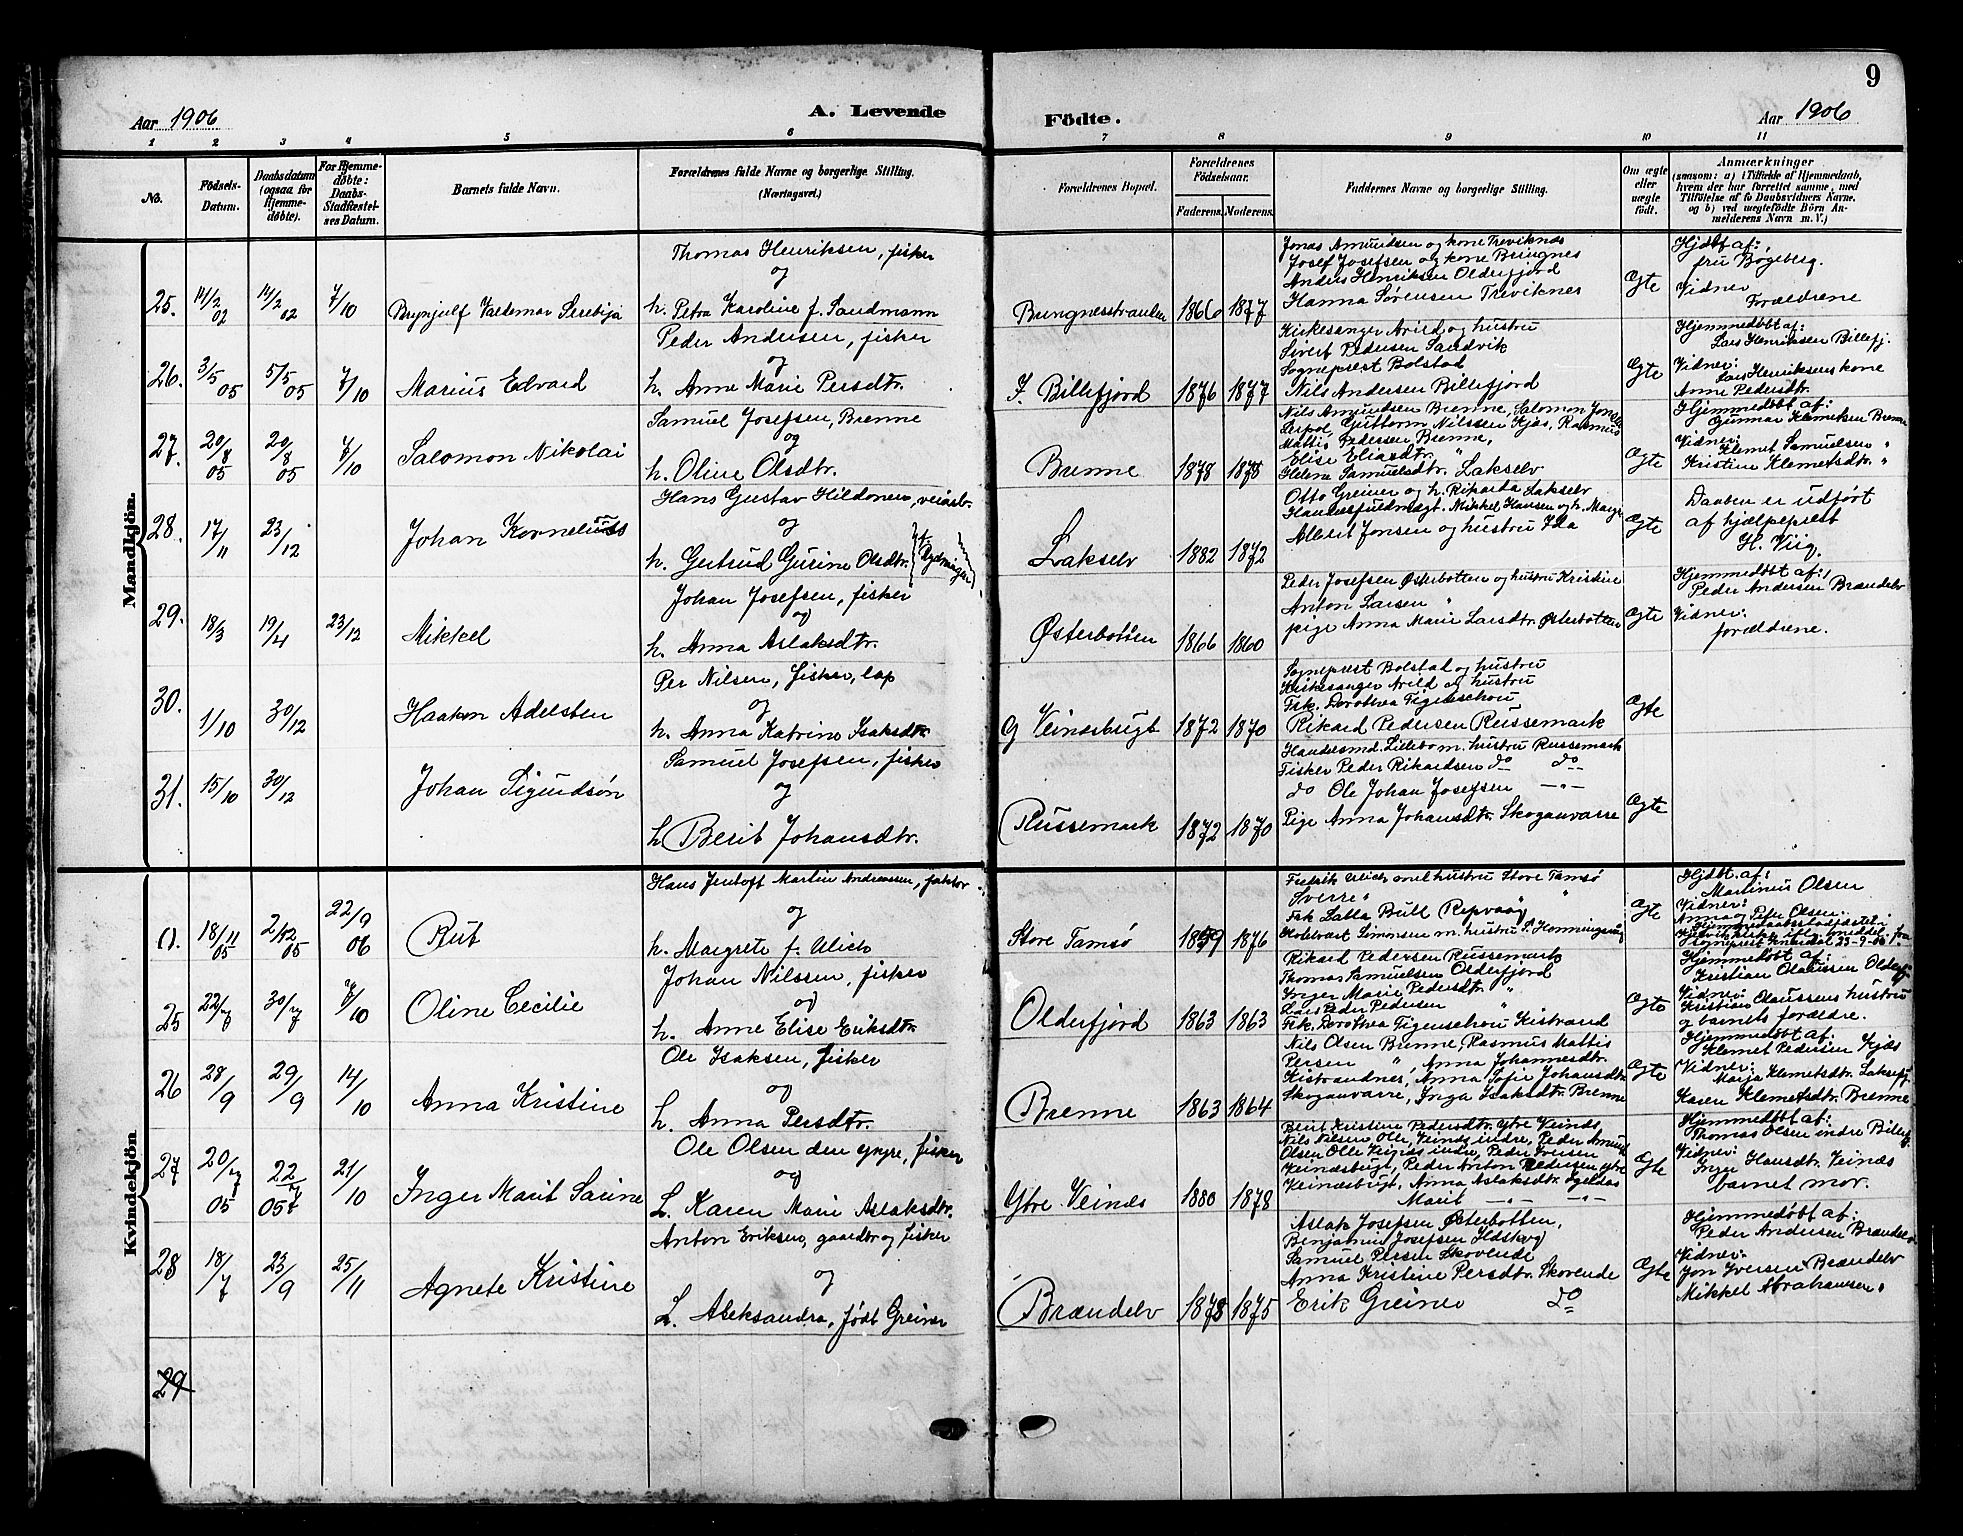 9
Aar 1906
A. Levende
Fødte.
Aar 1906
1 2 3 4 5 6 7 8 9 10 11
No.
Födsels-
Datum.
Daabsdatum
(ogsaa for
Hjemme-
døbte).
For Hjemme-
døbte:
Daabs-
Stadfæstel-
ses Datum.
Barnets fulde Navn.
Forældrenes fulde Navne og borgerlige Stilling.
(Næringsvei.)
Forældrenes Bopæl.
Forældrenes
Födselsaar.
Faderens. Moderens.
Faddernes Navne og borgerlige Stilling.
Om ægte
eller
uægte
født.
Anmærkninger
(saasom: a) i Tilfælde af Hjemmedaab,
hvem der har forrettet samme, med
Tilföielse af to Daabsvidners Navne,
og b) ved uægtefödte Börn An-
melderens Navn m. V.)
Mandkjön.
25. 14/2 02 14/2 02 7/10
Thomas Henriksen, fisker
og
h. Petra Karoline f. Sandmann
1866 1877
Jonas Amundsen og kone Treviknæs
Josef Josefsen og kone Bringnes
Anders Henriksen Olderfjord
Hanna Sørensen Treviknes
Ægte
Hjdøbt af:,
fru Bøgeberg.
Vidner
Forældrene
26. 3/5 05 5/5 05 7/10
Marius Edvard
Peder Andersen, fisker
og
h. Anne Marie Persdtr.
I. Billefjord 1876 1877
Kirkesanger Arild og hustru
Sivert Pedersen Sandvik
Sogneprest Bolstad
Nils Andersen Billefjord
Ægte
Hjemmedøbt af:
Lars Henriksen Billefj.
Vidner:
Lars Henriksens kone
Anne Pedersdtr.
27. 20/8 05 20/8 05 7/10
Salomon Nikolai
Samuel Josefsen, Brenne
og
h. Oline Olsdtr.
Brenne 1878 1875
Nils Amundsen Brenne, Salomon
Guttorm Nilssen Kjæs, Rasmus
Mattis Pedersen Brenne,
Elise Eliasdtr. "
Helene Samuelsdtr. Lakselv
Ægte
Hjemmedøbt af:
Gunnar Klemetsen Brenne
Vidner:
Klemet Samuelsen "
Kristine Klemetsdtr. "
28. 17/11 23/12
Johan Kornelius
Hans Gustav Hildonen, veiarb.
og
h. Gertrud Gurine Olsdtr.
Lakselv 1882 1872
Otto Greiner og h. Rikarda Lakselv
Handelsfuldmægt. Mikkel Hansen og h.
Albert Jonsen og hustru Ida
Ægte
Daaben er udført
af hjælpeprest
H. Viig.
29. 18/3 19/4 23/12
Mikkel
Johan Josefsen, fisker
og
h. Anna Aslaksdtr.
Østerbotten 1866 1860
Peder Josefsen Østerbotten og hustru Kristine
Anton Larsen "
pige Anna Marie Larsdtr. Østerbotten
Ægte
Hjemmedøbt af:,
Peder Andersen Brændelv
Vidner:
forældrene.
30. 1/10 30/12
Haakon Adelsten
Per Nilsen, fisker, lap
og
h. Anna Katrine Isaksdtr.
Veinesbugt 1872 1870
Sogneprest Bolstad og hustru
Kirkesanger Arild og hustru
Frk. Dorothea Figenschou
Rikard Pedersen Russemark
Ægte
31. 15/10 30/12
Johan Sigurdsøn
Samuel Josefsen, fisker
og
h Berit Johansdtr.
Russemark 1872 1870
Handelsmd. Lillebo m. hustru Russemark
Fisker Peder Rikardsen do do
do Ole Johan Josefsen —"—
Pige Anna Johansdtr. Skoganvarre
Ægte
Kvindekjön
(). 18/11 05 2/12 05 22/9 06
Rut
Hans Jentoft Martin Andreassen, faktor
og
h. Margrete f. Ulich
Store Tamsø 1859 1876
Fredrik Ulich med hustru Store Tamsø
Sverre " "
Frk Labba Bull Repvaag
Simonsen m. hustru Honningsvaag
Ægte
Hjdbt. af:
Martinus Olsen
Vidner:
Anna og Peter Olsen.
25 22/7 30/7 7/10
Oline Cecilie
Johan Nilssen, fisker
og
h. Anne Elise Eriksdtr.
Olderfjord 1863 1863
Rikard Pedersen Russemark
Thomas Samuelsen Olderfjord
Inger Marie Pedersdtr. "
Lars Peder Pedersen "
Frk. Dorothea Figenschou Kistrand
Ægte
Hjemmedøbt af:
Kristian Olaussen Olderfj.
Vidner:
Kristian Olaussens hustru
og barnets forældre.
26 28/9 29/9 14/10
Anna Kristine
Ole Isaksen, fisker
og
h. Anna Persdtr.
Brenne 1863 1864
Nils Olsen Brenne, Rasmus Mattis
Persen ", Anna Johannesdtr.
Kistrandnes, Anna Sofie Johansdtr
Skoganvarre, Inga Isaksdtr. Brenne
Ægte
Hjemmedøbt af:
Klemet Pedersen Kjæs
Vidner:
Marja Klemetsdtr. Laksefj.
Karen Klemetsdtr. Brenne
27 20/7 05 22/7 05 21/10
Inger Marit Sarine
Ole Olsen den yngre, fisker
og
h. Karen Marie Aslaksdtr.
Ytre Veines 1880 1878
Berit Kristine Pedersdtr. Ytre Veines,
Nils Nilsen Ole, Veines indre, Peder Amund
Olsen Olle Veines indre, Peder Iversen
Veinesbugt, Peder Anton Pedersen ytre
Veinesbugt, Anna Aslaksdtr.
Marit —"— —"—
Ægte
Hjemmedøbt af:
Thomas Olsen indre Billefj.
Vidner:
Inger Hansdtr. Veines
barnet mor.
28 18/7 23/9 25/11
Agnete Kristine
Anton Eriksen, gaardbr og fisker
og
h. Aleksandra, født Greiner
Brændelv 1878 1875
Aslak Josefsen Østerbotten,
Benjamin Josefsen Ildskog
Samuel Persen Skovende
Anna Kristine Persdtr. Skovende
Erik Greiner do
Ægte
Hjemmedøbt af:
Peder Andersen Brændelv
Vidner:
Jon Iversen Brændelv
Mikkel Abrahamsen "
29